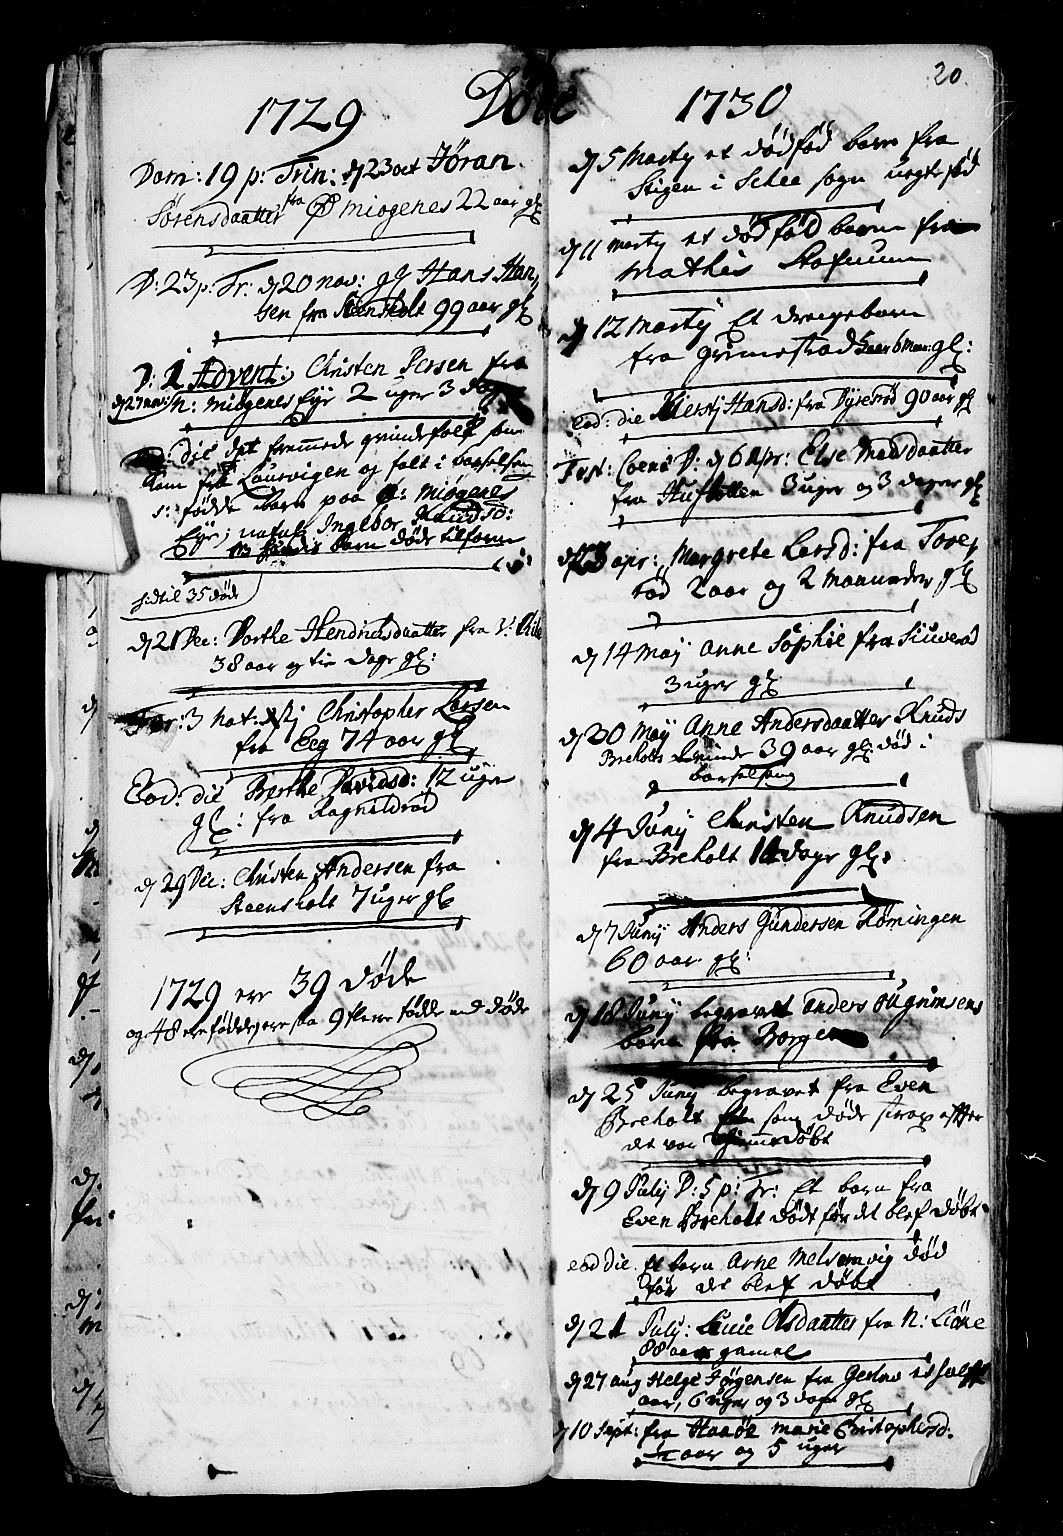 20.
1729 Døde 1730
Dom: 19 p: Trin: dj 23 oct Jøran
Sørensdaatter fra Ø Miøgenes 22 aar gl
D: 23 p: Tr: dj 20 nov: gl Hans Han
sen fra Steensholt 99 aar gl
D: 1 Advent: Christen Persen fra
dj 27 nov: N: Miøgenes Eyr 2 uger 3 dag
die det fremmede qvindfolk som
kom fra Laurvigen og falt i barselseng
fødde barn paa Miøgenes
Eyr; nafnl: Ingebor Knudsd:
barn døde tilforn
hidtil 35 død
dj 21 Dec: Dorthe Hendrichsdaatter fra
38 aar og tie dage gl:
Fer: 3 nat: Christopher Larsen
fra Eeg 74 aar gl
Eod: die Berthe Davidsd: 12 uger
gl: fra Ragnildrød
dj 29 Dec: Christen Andersen fra
Steensholt 7 uger gl
1729 ere 39 døde
og 48 ere fødde, ere saa 9 flere fødde end døde
dj 5 Marty et dødfød barn fra
Stigen i Schee sogn
dj 11 Marty et død fød barn fra
Mathis
dj 12 Marty Et drengebarn
fra Grimestad gl:
Eod: die Kierstj Hansd: fra Dyrsrød 90 aar gl
Fest: Coenæ D: dj 6 Apr: Else Madsdaatter
fra 3 uger og 3 dager gl
dj 23 apr: Margrete Larsd: fra Torep
rød 2 aar og 2 maaneder gl
dj 14 May Anne Sophie fra
3 uger gl
dj 20 May Anne Andersdaatter Knuds
Breholts qvinde 39 aar gl: død i
barselseng
dj 4 Junij Christen Knudsen
fra Breholt 14 dage gl:
dj 7 Junij Anders Gundersen Rømingen
60 aar gl:
dj 18 Junij begravet Anders
barn fra Borgen
dj 25 Junij begravet fra Even
Breholt som døde strax efter
det var hiemmedøbt
dj 9 July D: 5 p: Tr: Et barn fra
Even Breholt døde før det blef døbt
eod die Et barn Arne Melsomvig død
før det blef døbt
dj 21 July: Olsdaatter fra N: Liøne
88 aar gamel
dj 27 aug Helge Jørgensen fra et half
aar, 6 uger og 3 dage gl
dj 10 Sept: fra Haaøe Marie Christophersd:
aar og 5 uger